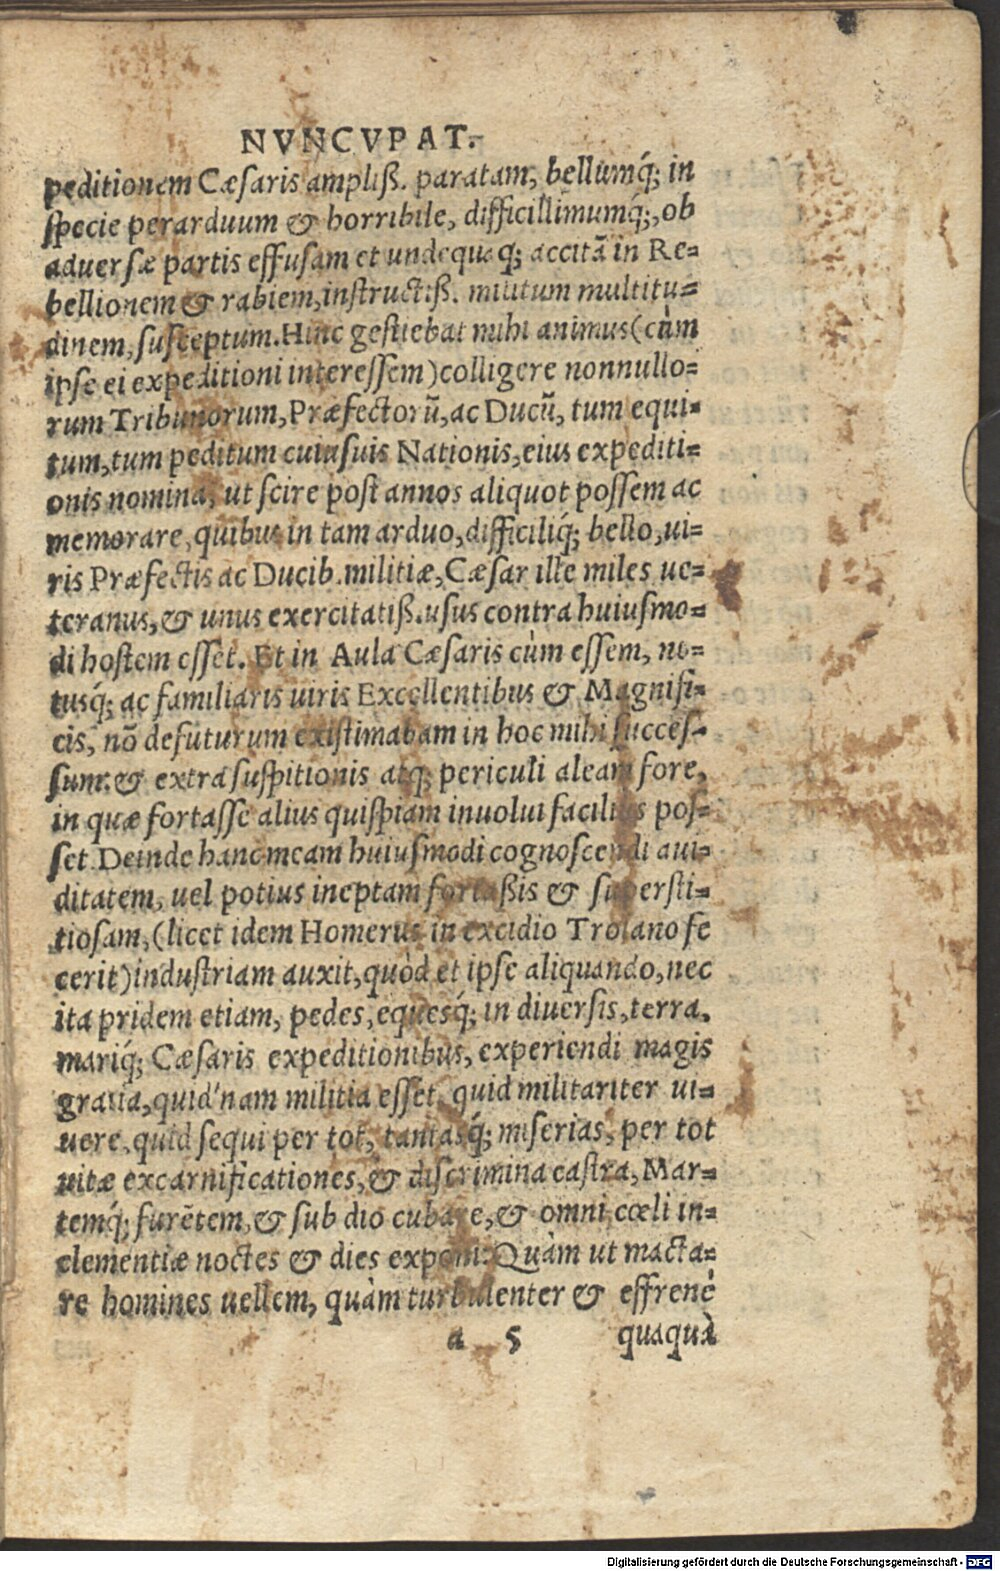 NVNCVPAT.
peditionem Cæsaris ampliß. paratam, bellumq́; in
specie perarduum & horribile, difficillimumq́;, ob
aduersæ partis effusam et undequaq; accitã in Re=
bellionem & rabiem, instructiß. militum multitu=
dinem, susceptum. Hinc gestiebat mihi animus (cùm
ipse ei expeditioni interessem) colligere nonnullo=
rum Tribunorum, Præfectorũ, ac Ducũ, tum equi=
tum, tum peditum cuiusuis Nationis, eius expediti=
onis nomina, ut scire post annos aliquot possem ac
memorare, quibus in tam arduo, difficiliq́; bello, ui=
ris Præfectis ac Ducib. militiæ, Cæsar ille miles ue=
teranus, & unus exercitatiß. usus contra huiusmo=
di hostem esset. Et in Aula Cæsaris cùm essem, no=
tusq́; ac familiaris uiris Excellentibus & Magnifi=
cis, nõ defuturum existimabam in hoc mihi succes=
sum: & extra suspitionis atq; periculi aleam fore,
in quæ fortasse alius quispiam inuolui facilius pos=
set. Deinde hanc meam huiusmodi cognoscendi aui=
ditatem, uel potius ineptam fortaßis & supersti=
tiosam, (licet idem Homerus in excidio Troiano fe
cerit) industriam auxit, quòd et ipse aliquando, nec
ita pridem etiam, pedes, equesq́; in diuersis, terra,
mariq́; Cæsaris expeditionibus, experiendi magis
gratia, quid'nam militia esset, quid militariter ui=
uere, quid sequi per tot, tantasq́; miserias, per tot
uitæ excarnificationes, & discrimina castra, Mar=
temq́; furẽtem, & sub dio cubare, & omni cœli in=
clementiæ noctes & dies exponi: Quàm ut macta=
re homines uellem, quàm turbulenter & effrenè
a 5 quaquà
Digitalisierung gefördert durch die Deutsche Forschungsgemeinschaft - DFG